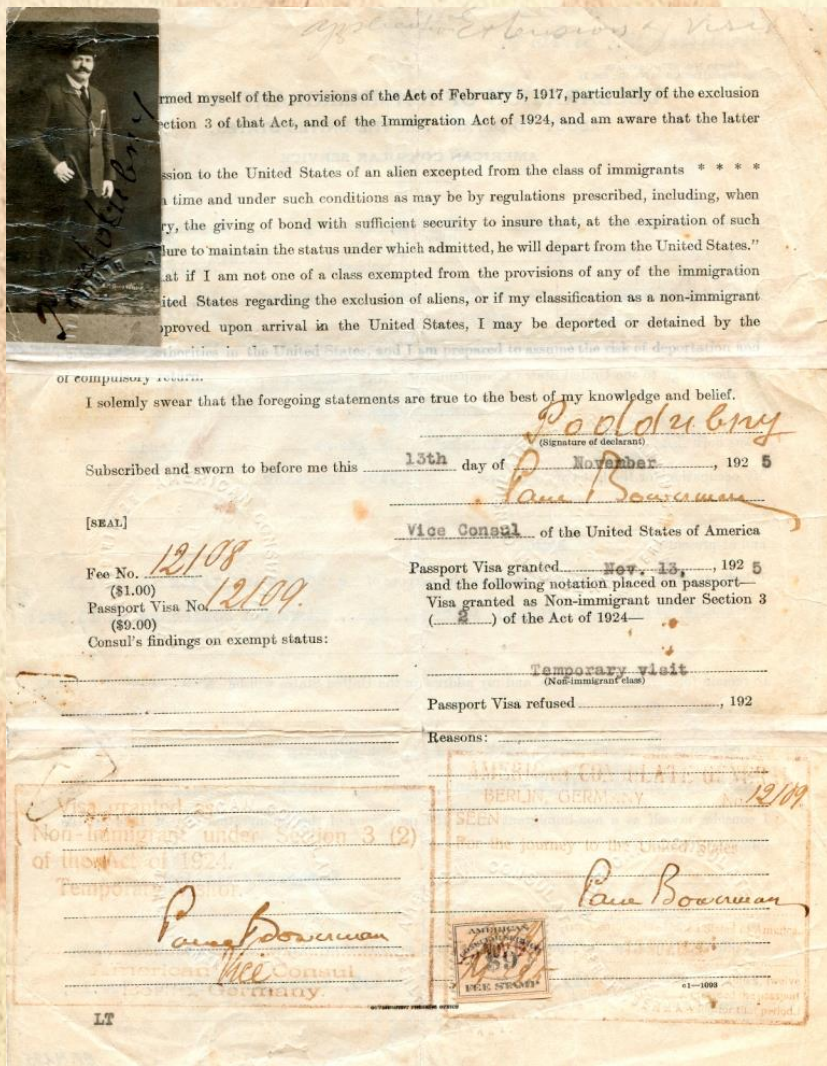 Extension & Visit
rmed myself of the provisions of the Act of February 5, 1917, particularly of the exclusion
ection 3 of that Act, and of the Immigration Act of 1924, and am aware that the latter
ssion to the United States of an alien excepted from the class of immigrants * * * *
time and under such conditions as may be by regulations prescribed, including, when
ry, the giving of bond with sufficient security to insure that, at the expiration of such
lure to maintain the status under which admitted, he will depart from the United States."
at if I am not one of a class exempted from the provisions of any of the immigration
ited States regarding the exclusion of aliens, or if my classification as a non-immigrant
pproved upon arrival in the United States, I may be deported or detained by the
in the United States, and I am prepared to assume the risk of deportation and
of compulsory return.
I solemnly swear that the foregoing statements are true to the best of my knowledge and belief.
Poddubny
(Signature of declarant)
Subscribed and sworn to before me this 13th day of November, 192 5
Bowerman
[SEAL]
Vice Consul of the United States of America
Fee No. 12108
($1.00)
Passport Visa No. 12109.
($9.00)
Consul's findings on exempt status:
Passport Visa granted Nov. 13, 192 5
and the following notation placed on passport—
Visa granted as Non-immigrant under Section 3
(2) of the Act of 1924—
Temporary visit
(Non-immigrant class)
Passport Visa refused , 192
Reasons:
Visa granted as
Non-Immigrant under Section 3 (2)
of the Act of 1924.
Temporary visitor.
Bowerman
American Vice Consul
Germany.
AMERICAN CONSULATE GENERAL
BERLIN, GERMANY No. 12109
SEEN
For the journey to the United States
Bowerman
AMERICAN
$9
FEE STAMP
c1—1093
LT